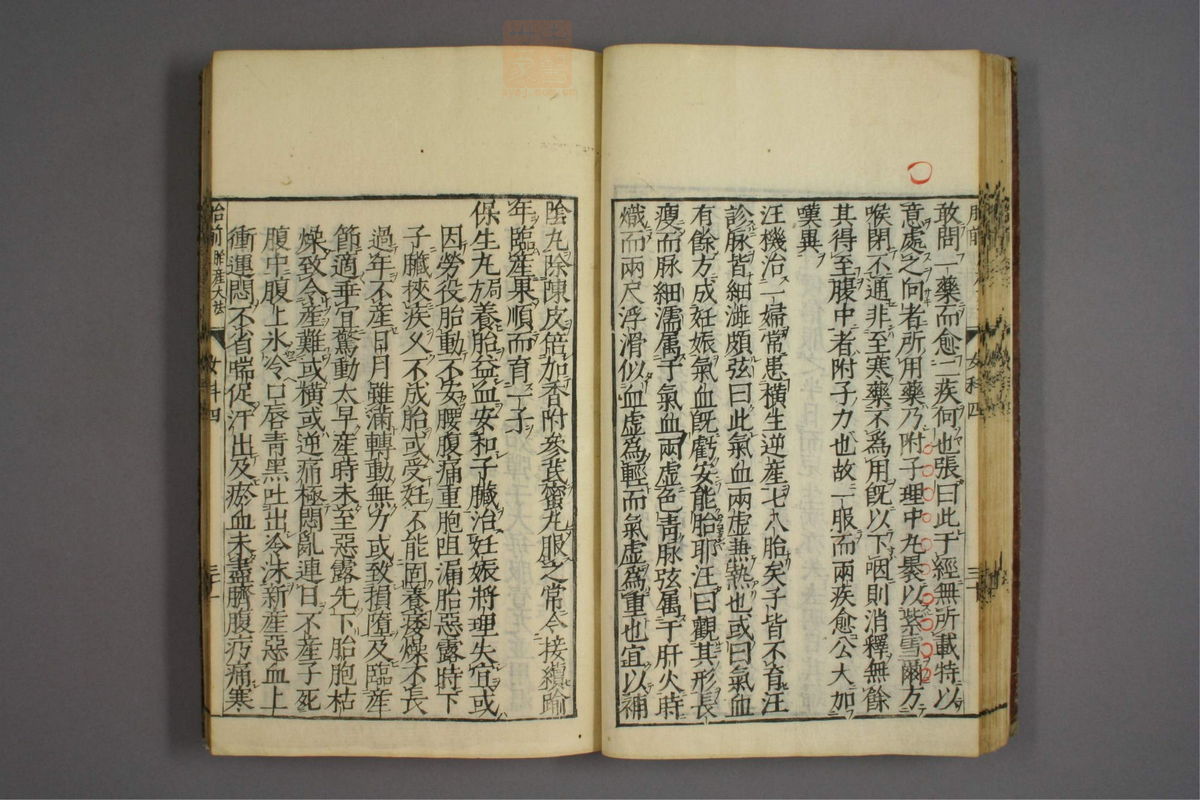 敢問一藥而愈二疾何也張曰此于經無所載特以
意處之向者所用藥乃附子理中丸裹以紫雪爾方
喉閉不通非至寒藥不爲用旣以下咽則消釋無餘
其得至腹中者附子力也故一服而兩疾愈公大加
嘆異
汪機治一婦常患橫生逆產七八胎矣子皆不育汪
診脉皆細澁頗弦曰此氣血兩虛兼熱也或曰氣血
有餘方成妊娠氣血旣虧安能胎耶汪曰觀其形長
瘦而脉細濡屬于氣血兩虛色青脉弦屬于肝火時
熾而兩尺浮滑似血虛爲輕而氣虛爲重也宜以補
女科四
三十
陰丸除陳皮倍加香附參茋蜜丸服之常令接續踰
年臨產果順而育一子
保生丸局方養胎益血安和子臟治妊娠將理失宜或
因勞役胎動不安腰腹痛重胞阻漏胎惡露時下
子臟挾疾久不成胎或受妊不能固養痿燥不長
過年不產日月雖滿轉動無力或致損墮及臨產
節適乖宜驚動太早產時未至惡露先下胎胞枯
燥致令產難或橫或逆痛極悶亂連日不產子死
腹中腹上氷冷口唇青黑吐出冷沫新產惡血上
衝運悶不省喘促汗出及瘀血未盡臍腹疞痛寒
胎前
女科四